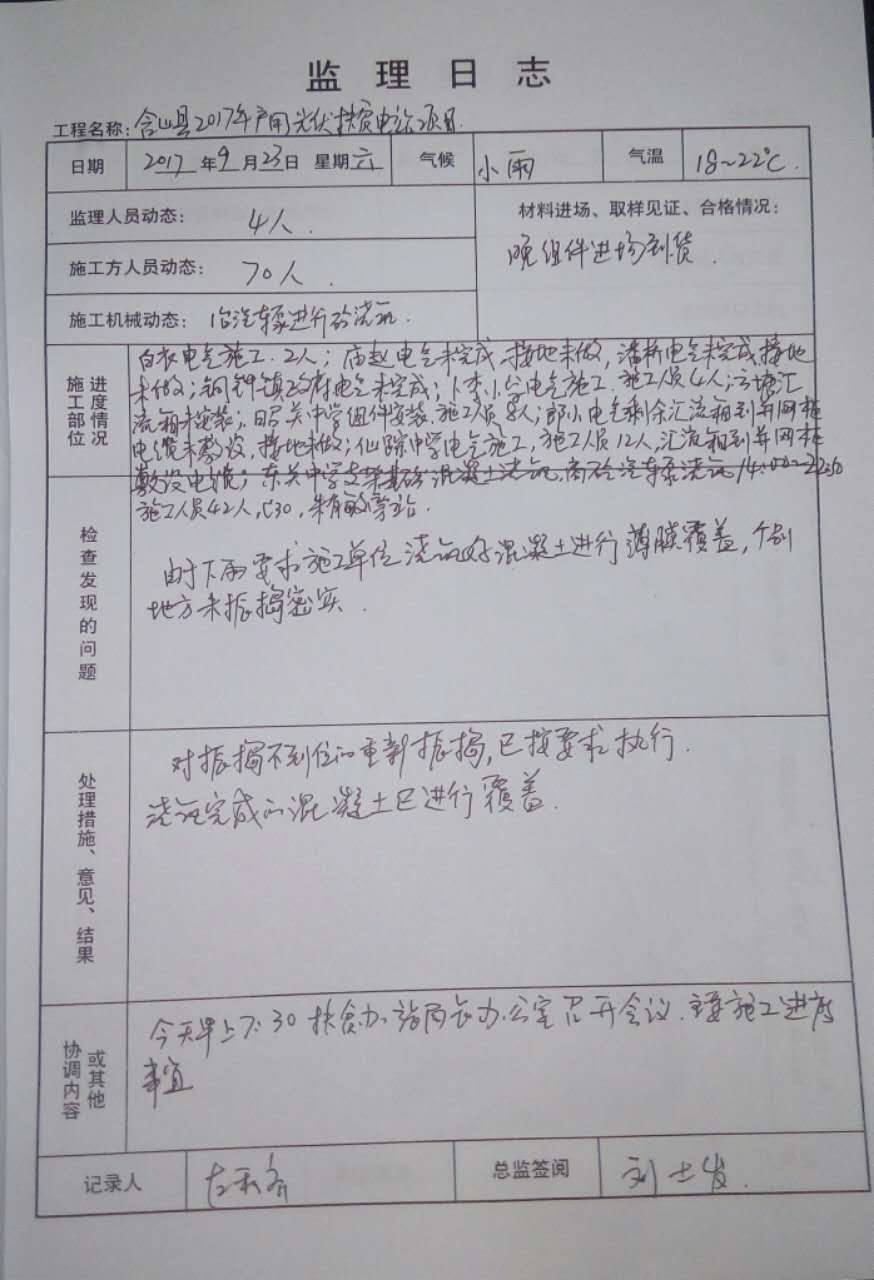 监理日志
工程名称：含山县2017年户用光伏扶贫电站项目.
日期 2017年9月23日 星期六 气候 小雨 气温 18~22℃.
监理人员动态： 4人. 材料进场、取样见证、合格情况：
晚组件进场到货.
施工方人员动态： 70人.
施工机械动态： 1台汽车泵进行砼浇筑.
进度情况
施工部位
白衣电气施工.2人；庙赵电气未完成,接地未做,潘桥电气未完成接地
未做；铜闸镇政府电气未完成；电气施工.施工人员4人；汇
流箱未安装；昭关中学组件安装.施工人员8人；电气剩余汇流箱到并网柜
电缆未敷设,接地未做；仙踪中学电气施工,施工人员12人,汇流箱到并网柜
敷设电缆；东关中学支架基础混凝土浇筑,商砼汽车泵浇筑14:00~22:30
施工人员42人,C30,旁站.
检查发现的问题
由于下雨要求施工单位浇筑好混凝土进行薄膜覆盖,个别
地方未振捣密实.
处理措施、意见、结果
对振捣不到位的重新振捣,已按要求执行.
浇筑完成的混凝土已进行覆盖.
或其他
协调内容
今天早上7:30扶贫办局长办公室召开会议.主要施工进度
事宜
记录人 总监签阅 刘士发.